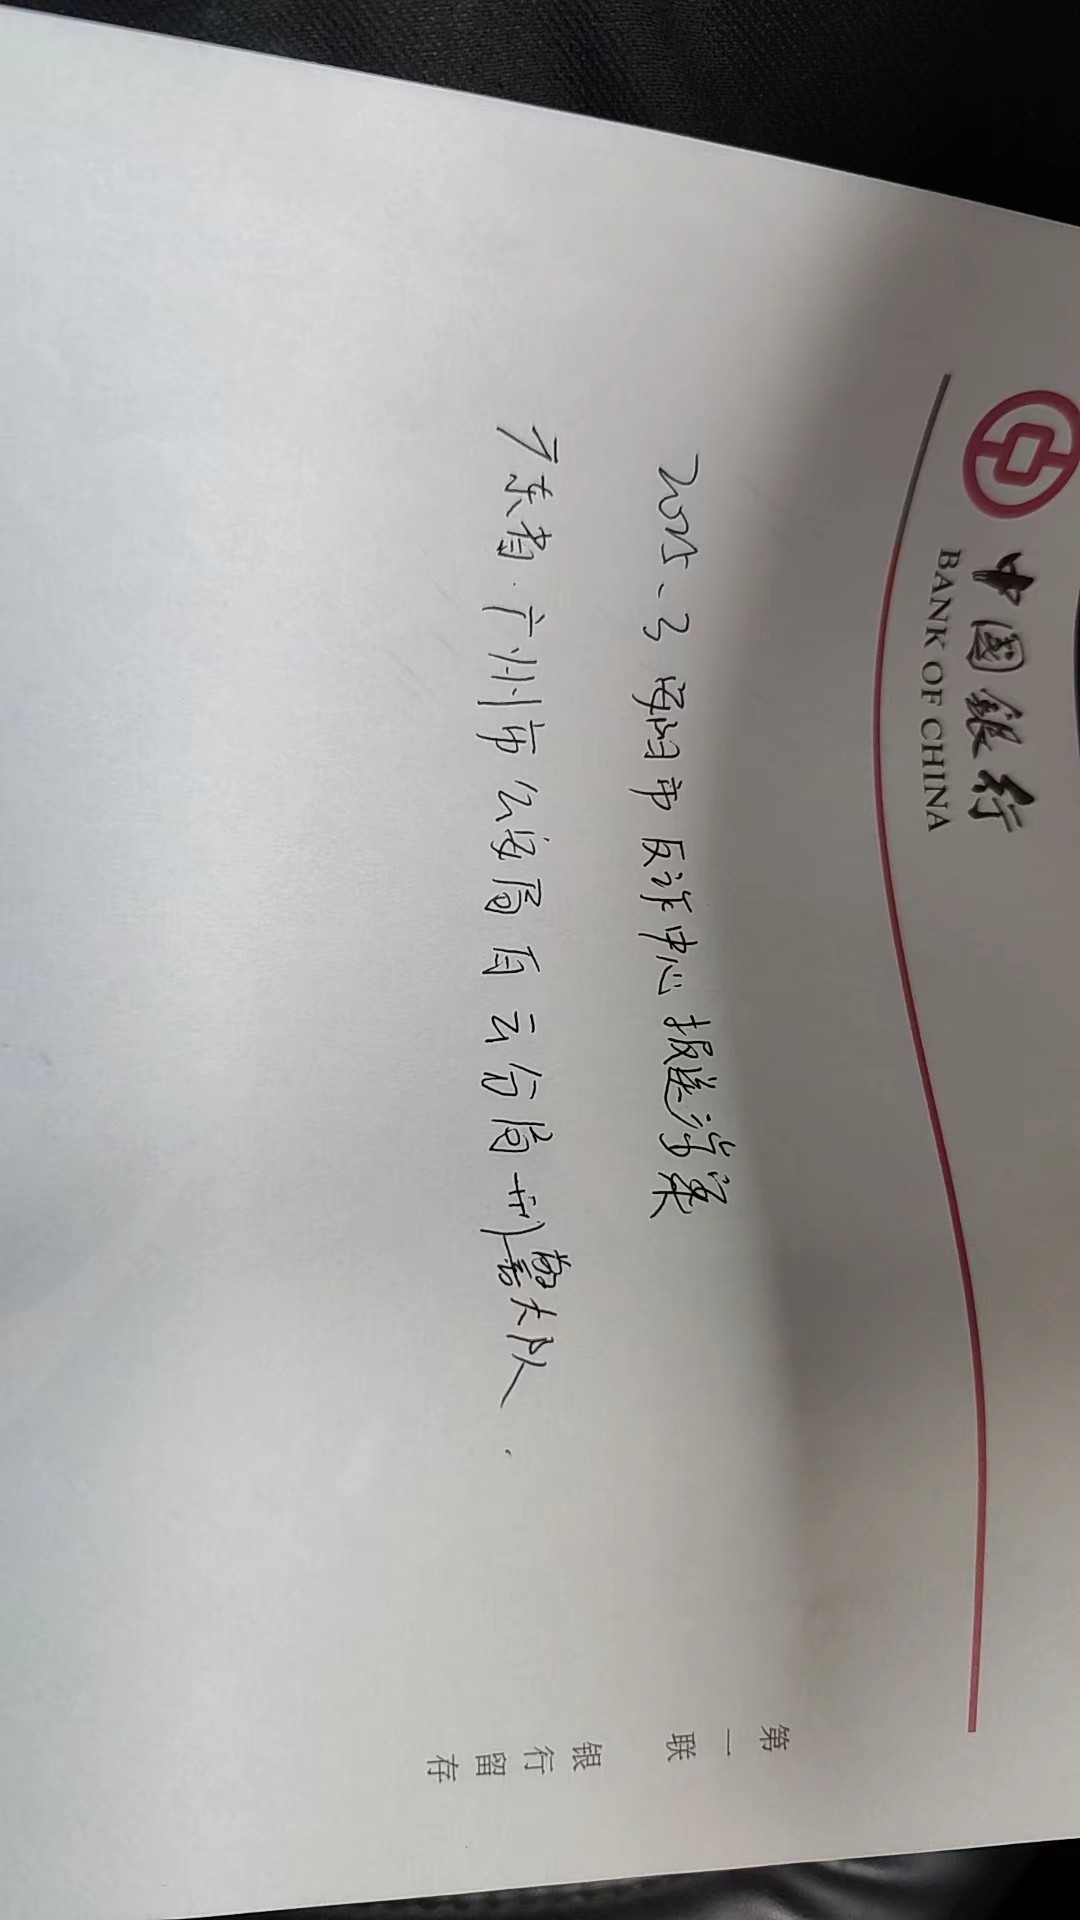 中国银行
BANK OF CHINA
2025.3 安阳市反诈中心报送涉案
广东省·广州市公安局白云分局刑警大队.
第一联 银行留存